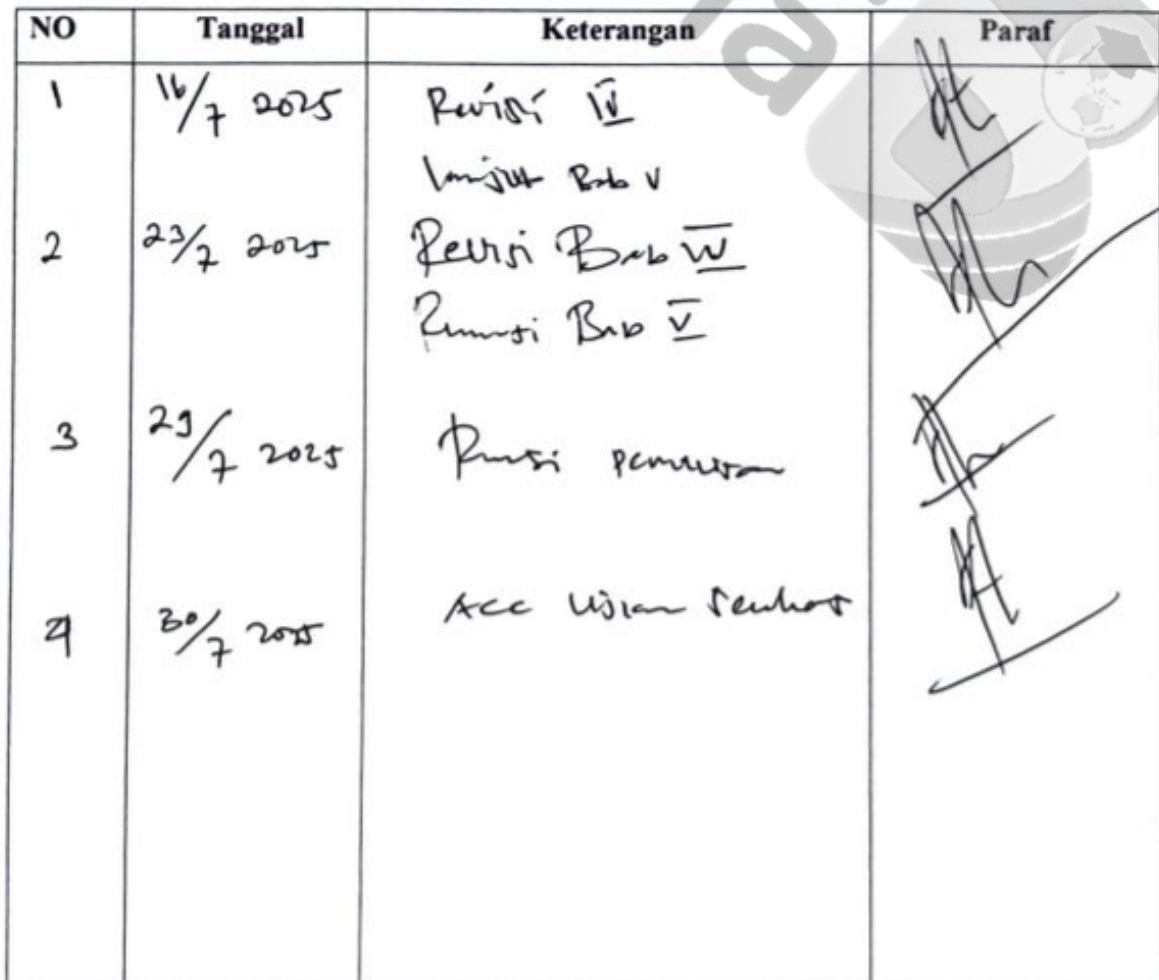 NO Tanggal Keterangan Paraf
1 16/7 2025 Revisi IV
lanjut Bab V
2 23/7 2025 Revisi Bab IV
Revisi Bab V
3 29/7 2025 Revisi penulisan
4 30/7 2025 ACC Ujian Semhas